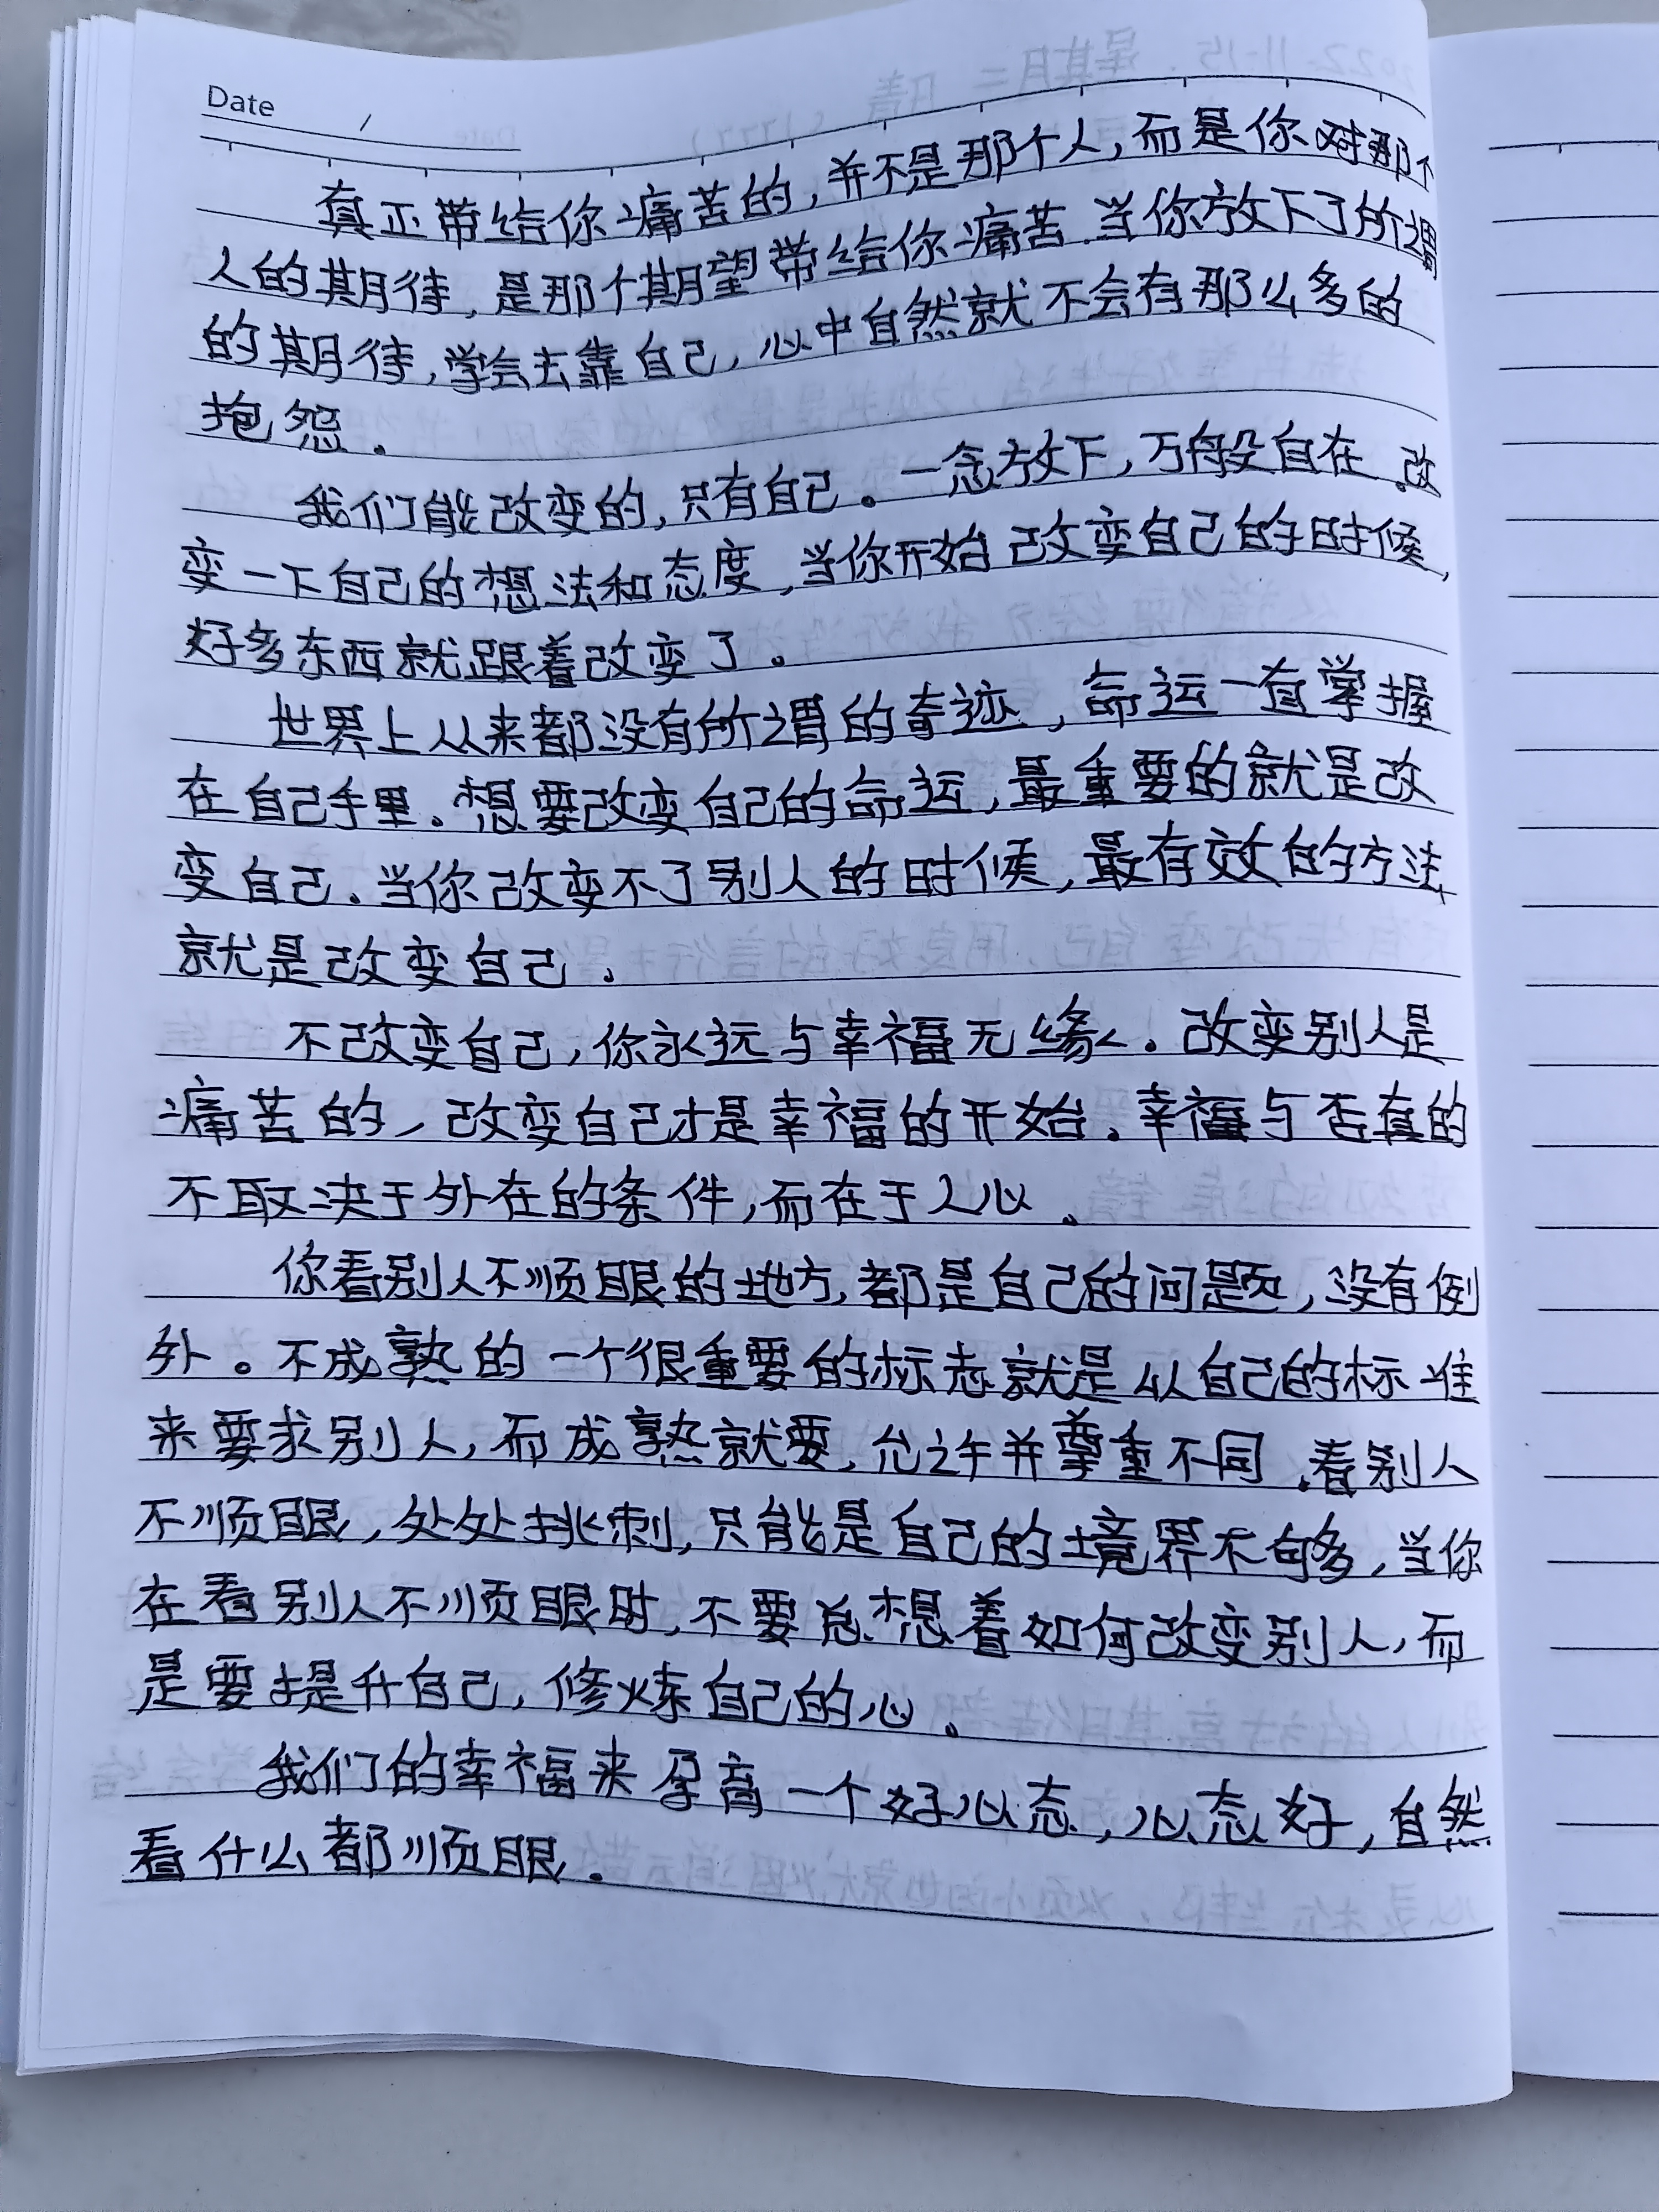 Date /
真正带给你痛苦的，并不是那个人，而是你对那个
人的期待，是那个期望带给你痛苦.当你放下了所谓
的期待，学会去靠自己，心中自然就不会有那么多的
抱怨.
我们能改变的，只有自己。一念放下，万般自在.改
变一下自己的想法和态度，当你开始改变自己的时候，
好多东西就跟着改变了。
世界上从来都没有所谓的奇迹，命运一直掌握
在自己手里。想要改变自己的命运，最重要的就是改
变自己.当你改变不了别人的时候，最有效的方法
就是改变自己.
不改变自己，你永远与幸福无缘.改变别人是
痛苦的，改变自己才是幸福的开始.幸福与否真的
不取决于外在的条件，而在于人心.
你看别人不顺眼的地方，都是自己的问题，没有例
外。不成熟的一个很重要的标志就是从自己的标准
来要求别人，而成熟就要，允许并尊重不同.看别人
不顺眼，处处挑刺，只能是自己的境界不够，当你
在看别人不顺眼时，不要总想着如何改变别人，而
是要提升自己，修炼自己的心.
我们的幸福来孕育一个好心态，心态好，自然
看什么都顺眼.